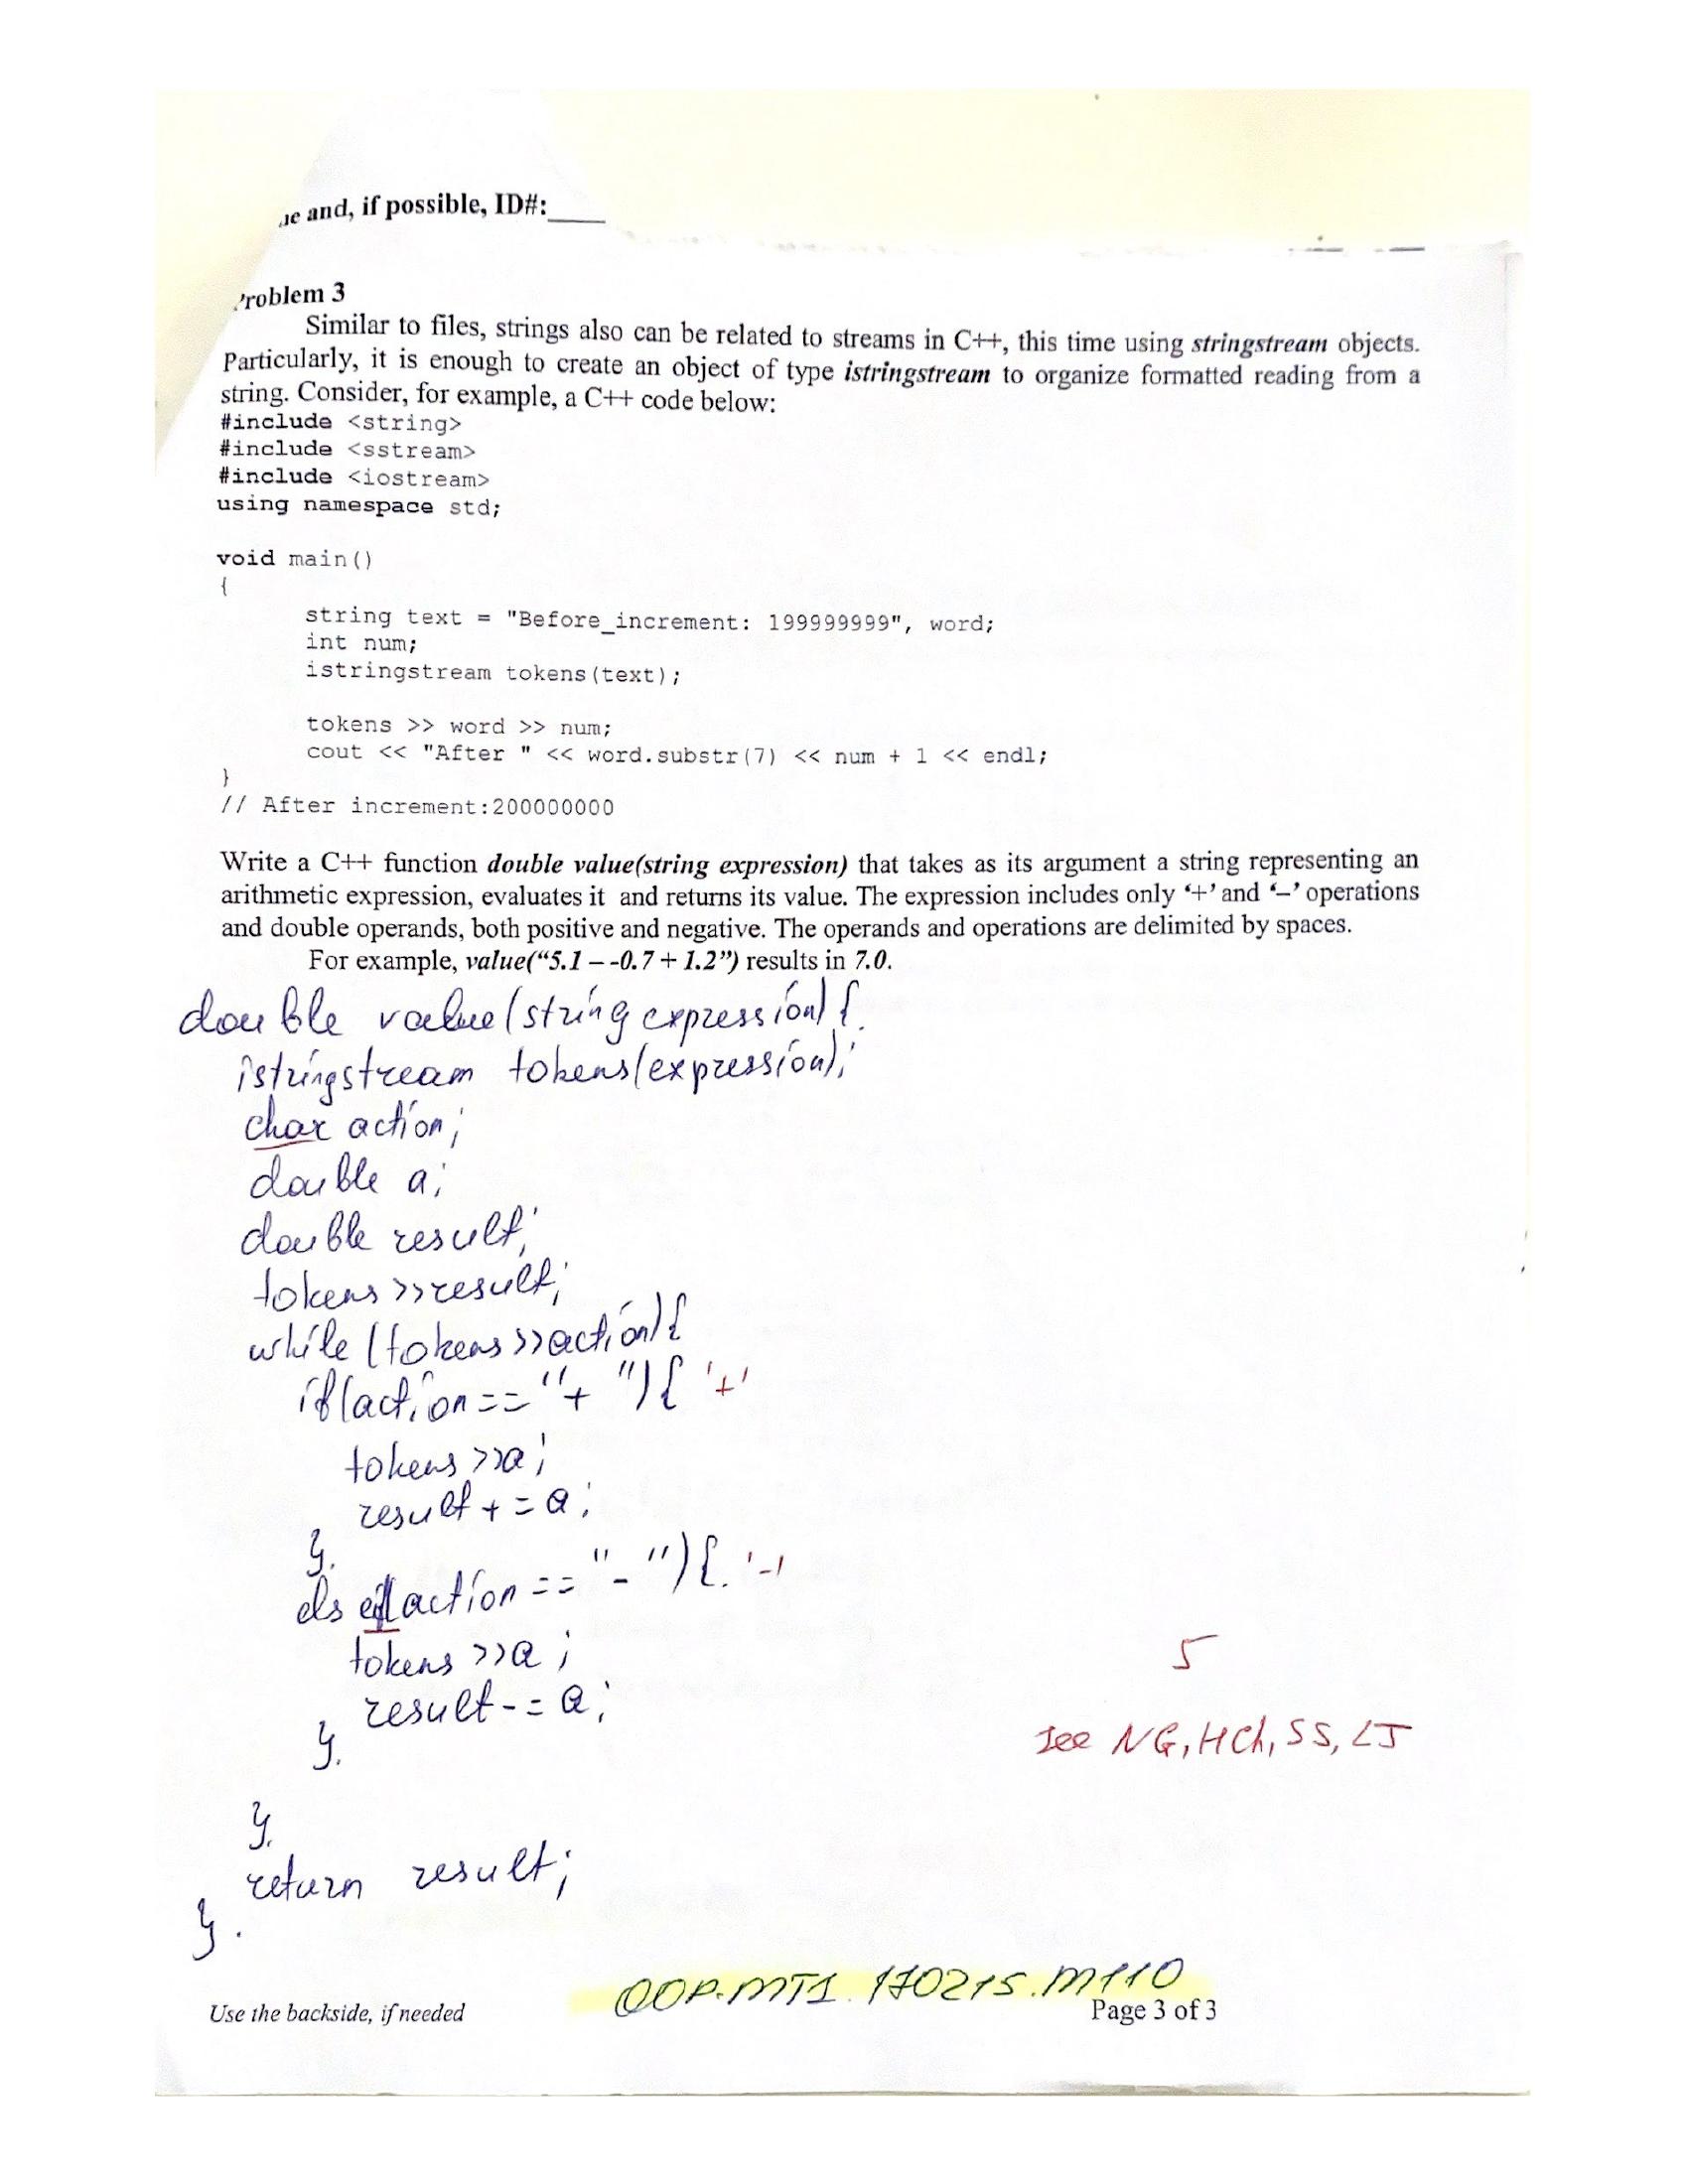 and, if possible, ID#:____
roblem 3
Similar to files, strings also can be related to streams in C++, this time using stringstream objects.
Particularly, it is enough to create an object of type istringstream to organize formatted reading from a
string. Consider, for example, a C++ code below:
#include <string>
#include <sstream>
#include <iostream>
using namespace std;
void main()
{
string text = "Before_increment: 199999999", word;
int num;
istringstream tokens(text);
tokens >> word >> num;
cout << "After " << word.substr(7) << num + 1 << endl;
}
// After increment:200000000
Write a C++ function double value(string expression) that takes as its argument a string representing an
arithmetic expression, evaluates it and returns its value. The expression includes only ‘+’ and ‘–’ operations
and double operands, both positive and negative. The operands and operations are delimited by spaces.
For example, value(“5.1 – -0.7 + 1.2”) results in 7.0.
double value(string expression){
istringstream tokens(expression);
char action;
double a;
double result;
tokens >> result;
while (tokens >> action){
if(action == "+"){ '+'
tokens >> a;
result += a;
}
else if(action == "-"){ '-'
tokens >> a;
result -= a;
}
5
See NG, HCh, SS, LJ
}
return result;
}
OOP.MT1.170215.M110
Use the backside, if needed
Page 3 of 3